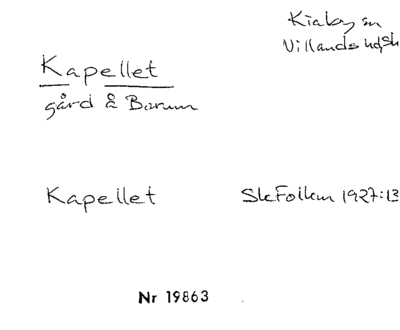 Kiaby sn
Villands hd, Sk
Kapellet
gård å Barum
Kapellet SkFolkm 1927:13
Nr 19863